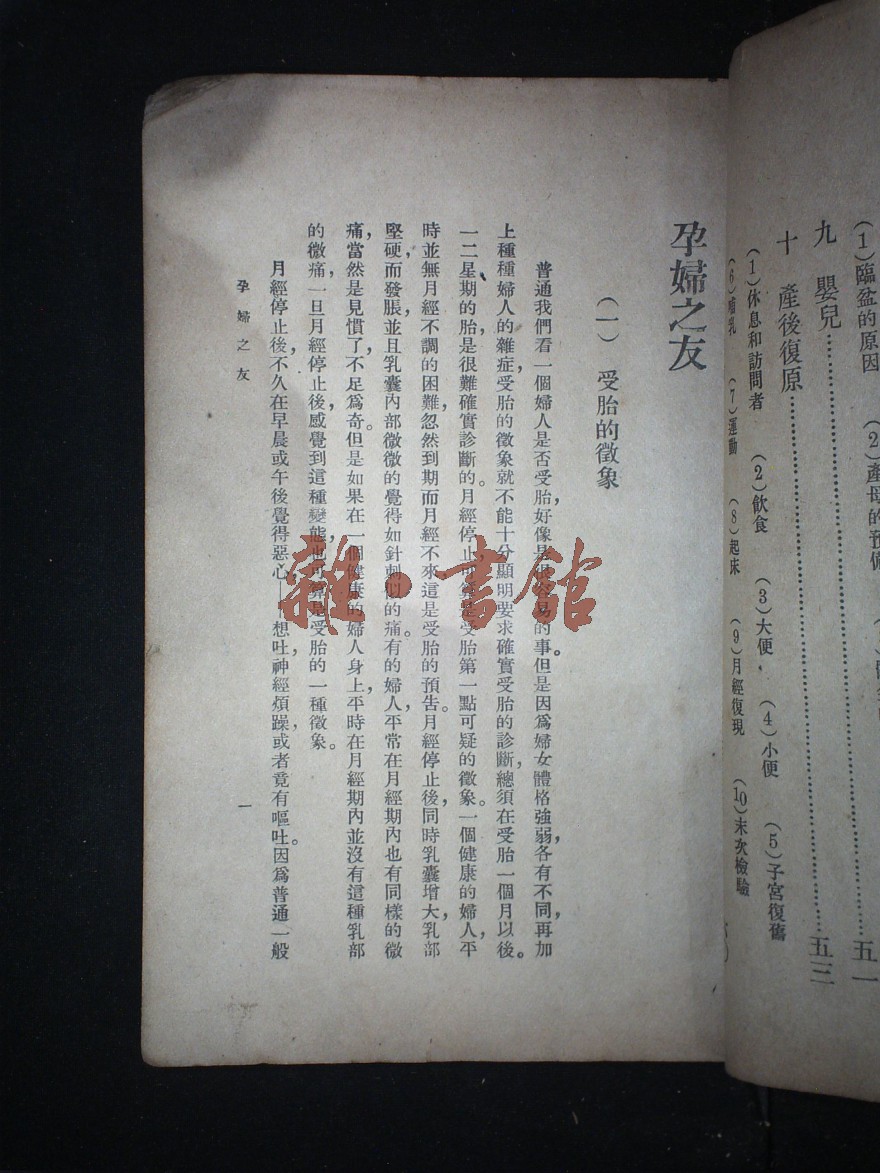 (1)臨盆的原因 (2)產母的預備
九 嬰兒……五一
十 產後復原……五三
(1)休息和訪問者 (2)飲食 (3)大便 (4)小便 (5)子宮復舊
(6)哺乳 (7)運動 (8)起床 (9)月經復現 (10)末次檢驗
孕婦之友
(一) 受胎的徵象
普通我們看一個婦人是否受胎,好像是很容易的事。但是因爲婦女體格強弱,各有不同,再加
上種種婦人的雜症,受胎的徵象就不能十分顯明,要求確實受胎的診斷,總須在受胎一個月以後。
一二星期的胎是很難確實診斷的。月經停止,可算是受胎第一點可疑的徵象。一個健康的婦人,平
時並無月經不調的困難,忽然到期而月經不來,這是受胎的預告。月經停止後,同時乳囊增大,乳部
堅硬而發脹,並且乳囊內部微微的覺得如針刺似的痛。有的婦人,平常在月經期內也有同樣的微
痛,當然是見慣了不足爲奇。但是如果在一個健康的婦人身上,平時在月經期內並沒有這種乳部
的微痛,一旦月經停止後,感覺到這種變態,也可算是受胎的一種徵象。
月經停止後,不久在早晨或午後覺得惡心——想吐,神經煩躁,或者竟有嘔吐。因爲普通一般
孕婦之友
一
雜·書館